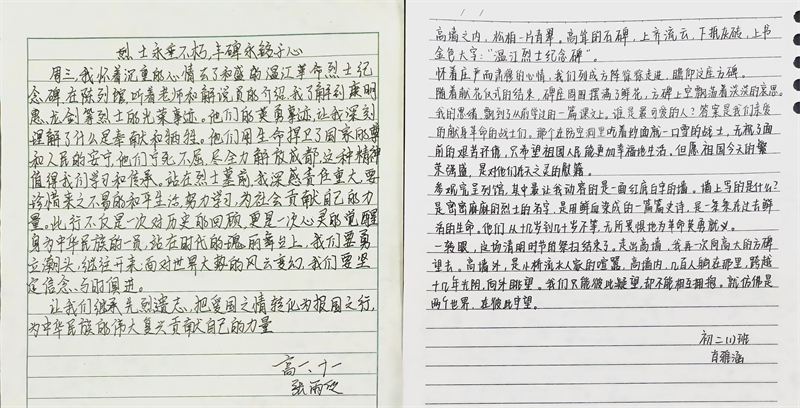 烈士永垂不朽，丰碑永铸于心
周三，我怀着沉重的心情去了和盛的温江革命烈士纪
念碑，在陈列馆，听着老师和解说员的介绍，我了解到康明
惠、龙剑等烈士的光荣事迹。他们的英勇事迹，让我深刻
理解了什么是奉献和牺牲。他们用生命捍卫了国家的尊
和人民的安宁，他们宁死不屈，尽全力解放成都，这种精神
值得我们学习和传承。站在烈士墓前，我深感责任重大，要
珍惜来之不易的和平生活，努力学习，为社会贡献自己的力
量。此行不仅是一次对历史的回顾，更是一次心灵的觉醒
身为中华民族的一员，站在时代的 舞台上，我们要勇
立潮头，继往开来，面对世界大势的风云变幻，我们要坚
定信念，与时俱进。
让我们继承先烈遗志，把爱国之情转化为报国之行，
为中华民族的伟大复兴贡献自己的力量
高一、十一
张雨欣
高墙之内，松柏一片青翠。高耸的石碑，上齐流云，下抵灰砖，上书
金色大字：“温江烈士纪念碑”。
怀着庄严而肃穆的心情，我们列成方阵缓缓走进，瞻仰这座方碑。
随着献花仪式的结束，碑座周围摆满了鲜花，方碑上空飘荡着淡淡的哀思。
我的思绪飘到了从前学过的一篇课文上，谁是最可爱的人？答案是我们亲爱
的献身革命的战士们。那个在防空洞里吃着炒面就一口雪的战士，无视了面
前的艰苦环境，只希望祖国人民能更加幸福地生活。但愿祖国今天的繁
荣强盛，是对他们在天之灵的慰籍。
参观完呈列馆，其中最让我动容的是一面红底白字的墙。墙上写的是什么？
是密密麻麻的烈士的名字，是用鲜血染成的一篇篇史诗，是一条条在过去鲜
活的生命。他们从十几岁到几十岁不等，无所畏惧地为革命英勇就义。
一转眼，这场清明时节的祭扫结束了。走出高墙，我再一次向高大的方碑
望去。高墙外，是小桥流水人家的喧嚣，高墙内，几百人躺在那里，跨越
十几年光阴，向外眺望。我们只能彼此凝望，却不能相互拥抱。就仿佛是
两个世界，在彼此守望。
初二（1）班
肖雅涵